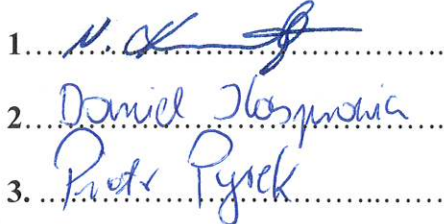 1.....N.
2 Daniel Kasprowicz
3. Piotr Pysek